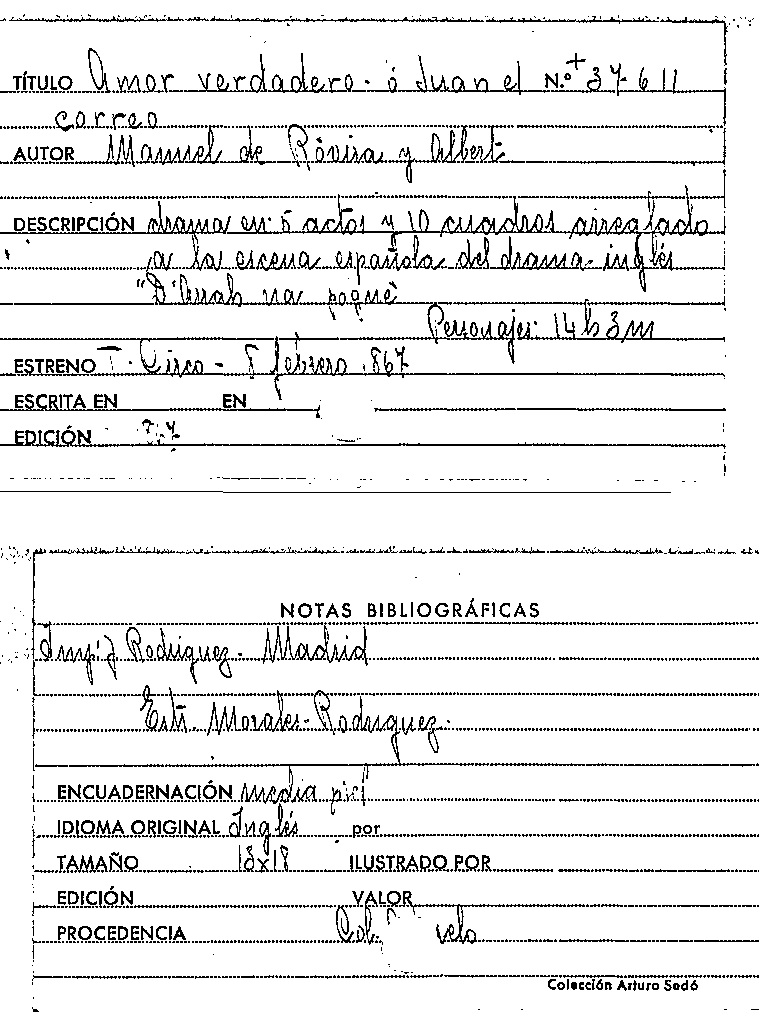 TÍTULO Amor verdadero - ó Juan el N.º + 37-611
correo
AUTOR Manuel de Róvira y Albert
DESCRIPCIÓN drama en 5 actos y 10 cuadros arreglado
a la escena española del drama inglés
"D'Arrah na pogue"
Personajes: 14 h 3 m
ESTRENO T. Circo - 8 febrero 867
ESCRITA EN EN
EDICIÓN
NOTAS BIBLIOGRÁFICAS
Imp: J Rodriguez - Madrid
Estr. Morales-Rodriguez.
ENCUADERNACIÓN media piel
IDIOMA ORIGINAL Inglés por
TAMAÑO 18x18 ILUSTRADO POR
EDICIÓN VALOR
PROCEDENCIA Col.
Colección Arturo Sedó